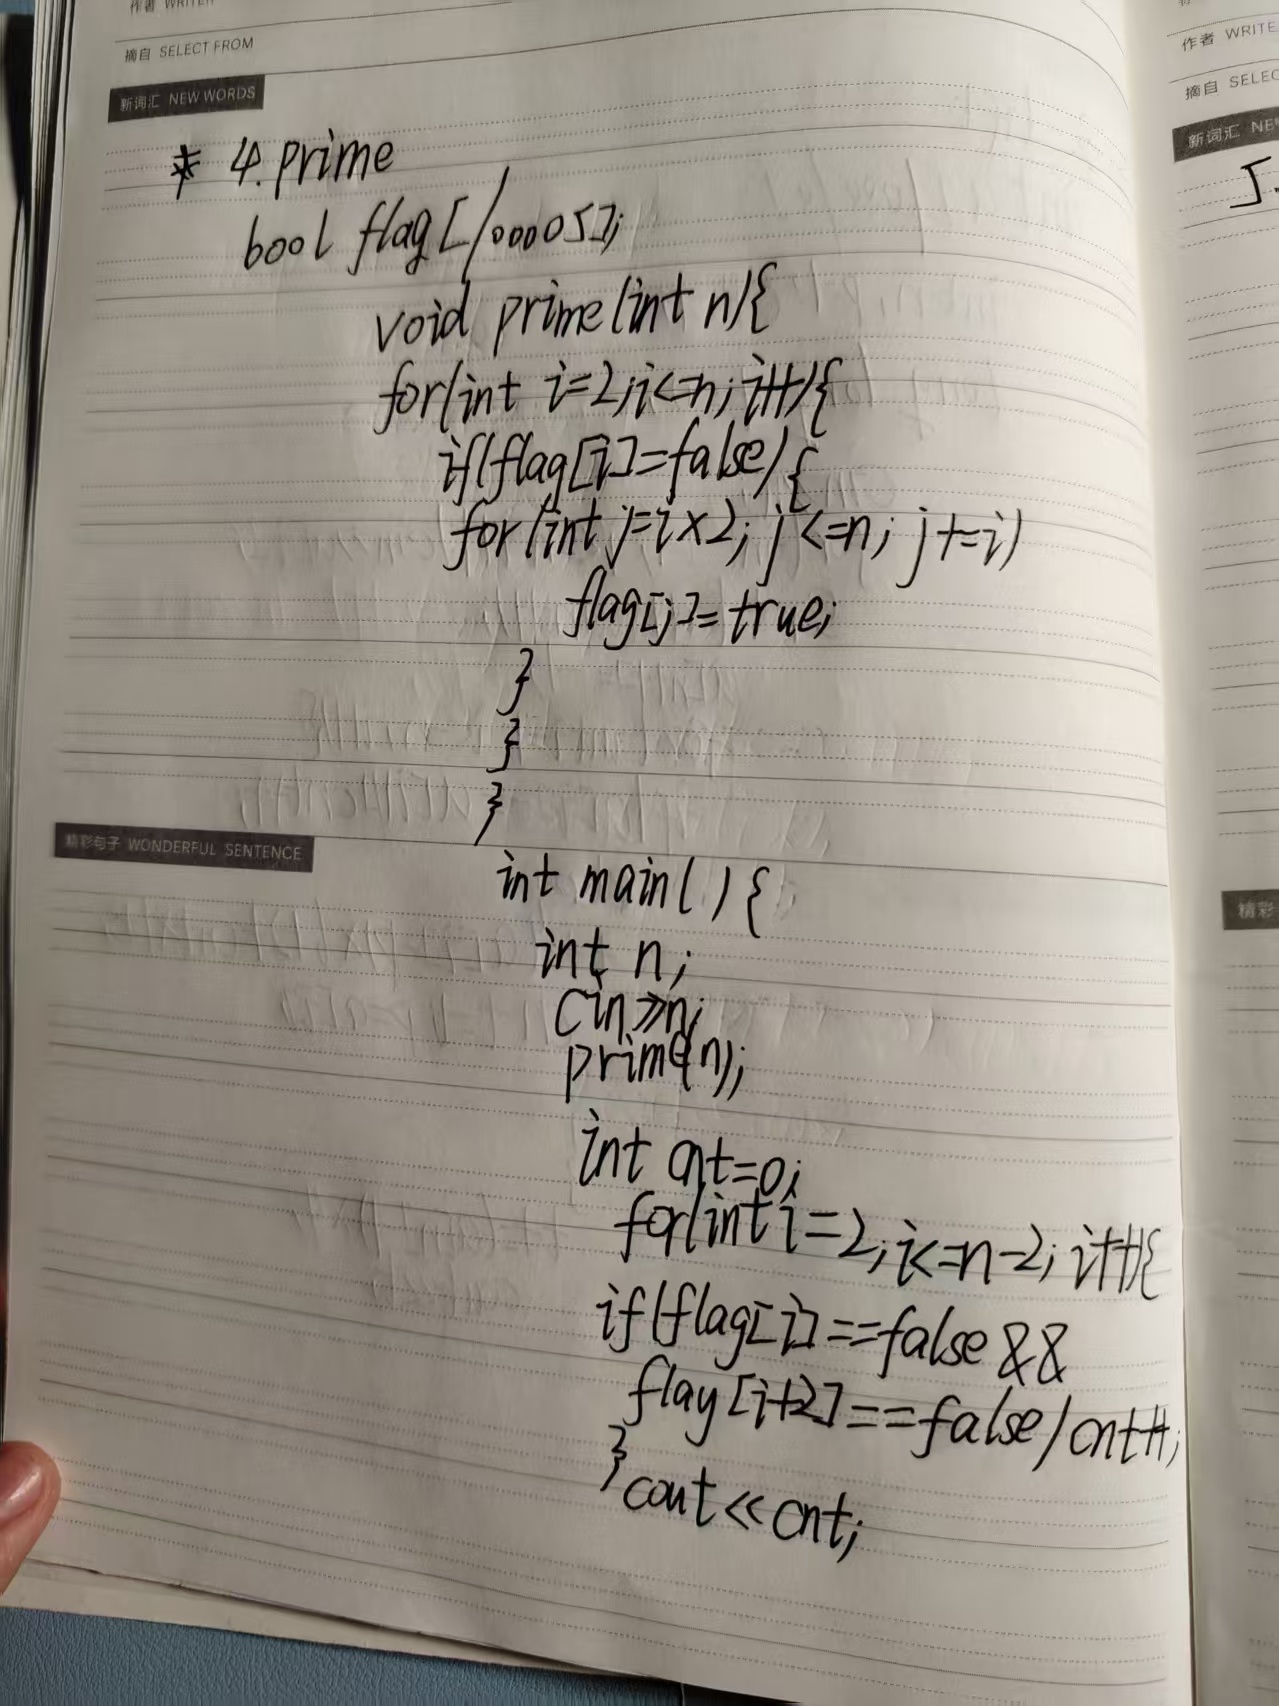 作者 WRITER
摘自 SELECT FROM
新词汇 NEW WORDS
* 4. prime
bool flag[100005];
void prime(int n){
for(int i=2;i<=n;i++){
if(flag[i]=false){
for(int j=i×2; j<=n; j+=i)
flag[j]=true;
}
}
}
精彩句子 WONDERFUL SENTENCE
int main(){
int n;
cin>>n;
prime(n);
int cnt=0;
for(int i=2;i<=n-2;i++){
if(flag[i]==false &&
flay[i+2]==false)cnt++;
}
cout<<cnt;
作者 WRITE
摘自 SELEC
新词汇 NEW
5.
精彩